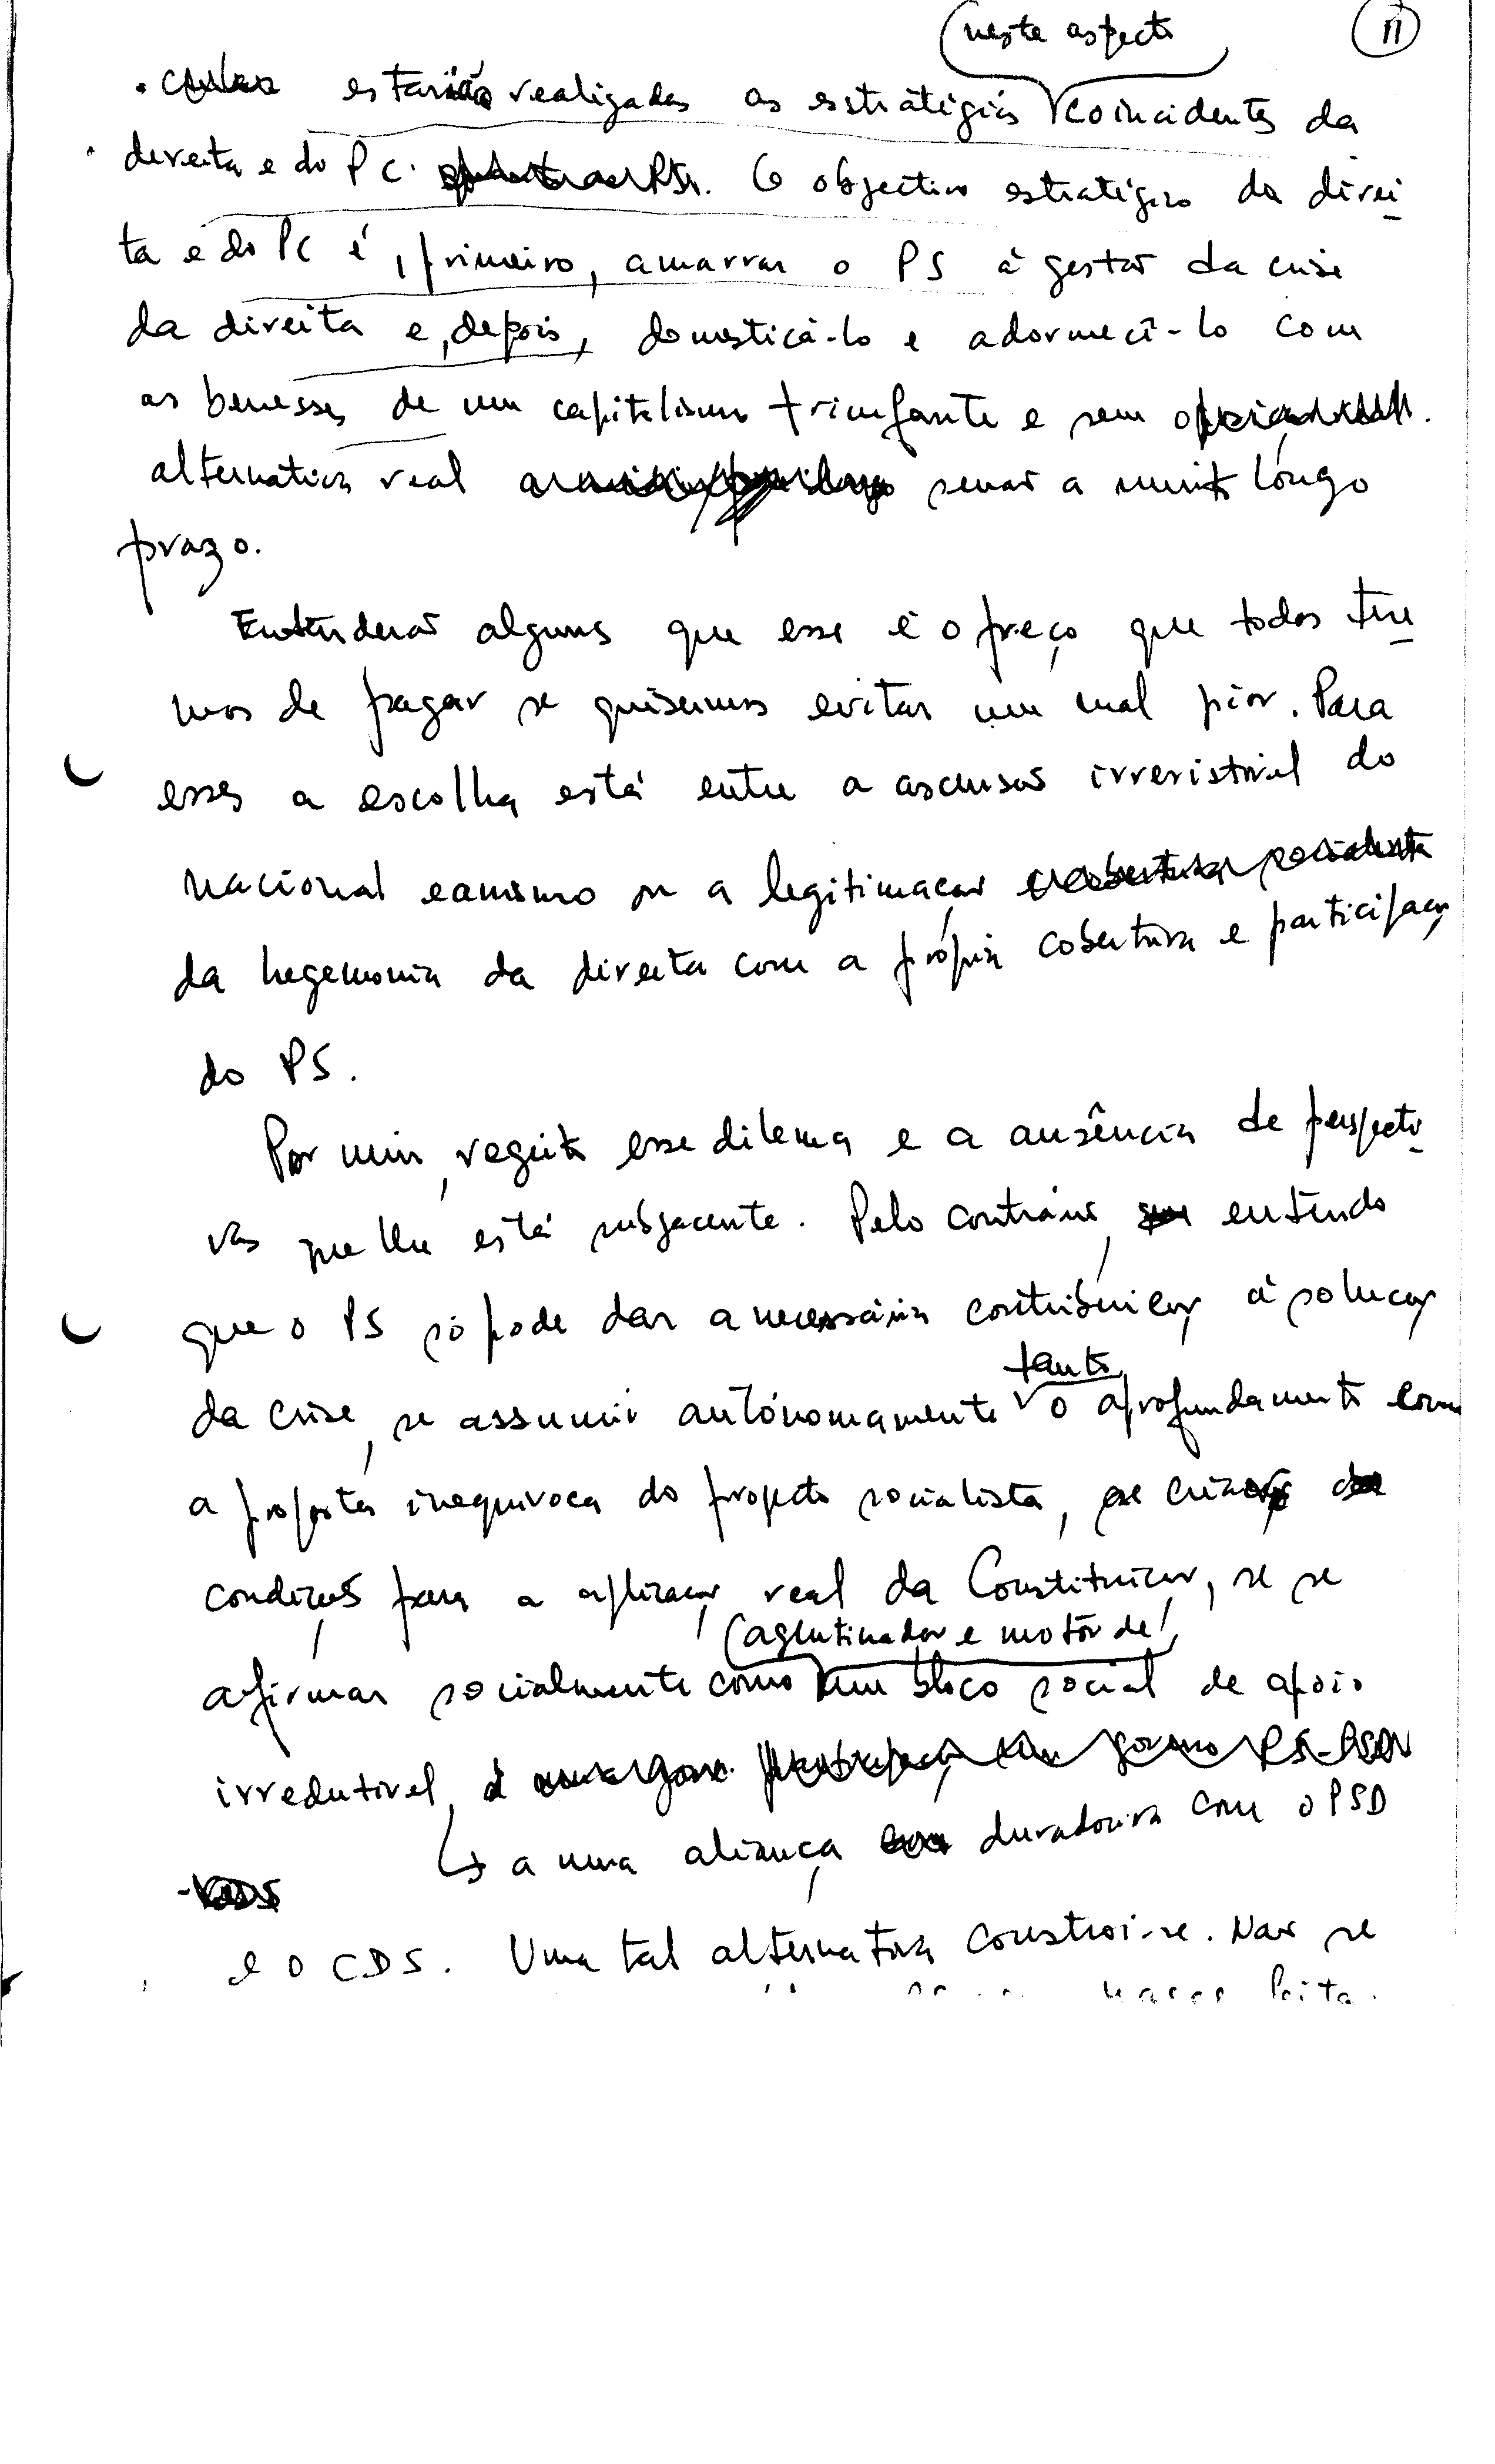 neste aspecto
11
estarão realizadas as estratégias coincidentes da
direita e do PC. O objectivo estratégico da direi-
ta e do PC é, primeiro, amarrar o PS à gestão da crise
da direita e, depois, domesticá-lo e adormecê-lo com
as benesses de um capitalismo triunfante e sem
alternativa real senão a muito longo
prazo.
Entenderão alguns que esse é o preço que todos te-
mos de pagar se quisermos evitar um mal pior. Para
esses a escolha está entre a ascensão irresistível do
nacional eanismo ou a legitimação
da hegemonia da direita com a própria cobertura e participação
do PS.
Por mim, rejeito esse dilema e a ausência de perspecti-
vas que lhe está subjacente. Pelo contrário, entendo
que o PS só pode dar a necessária contribuição à solução
tanto
da crise, se assumir autónomamente o aprofundamento como
a proposta inequívoca do projecto socialista, se criar
condições para a aplicação real da Constituição, se se
aglutinador e motor de
afirmar socialmente como um bloco social de apoio
irredutível,
a uma aliança duradoura com o PSD
e o CDS. Uma tal alternativa constroi-se. Não se